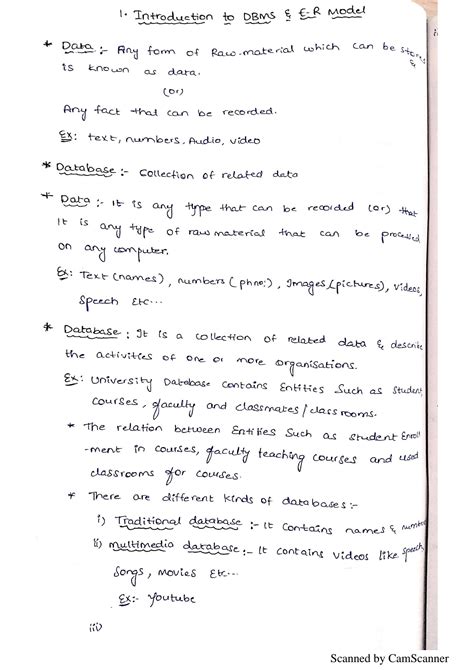 1. Introduction to DBMS & E-R Model
* Data :- Any form of Raw-material which can be stored
& is known as data.
(or)
Any fact that can be recorded.
Ex: text, numbers, Audio, video
* Database :- Collection of related data
* Data :- It is any type that can be recorded (or) that
It is any type of raw material that can be processed
on any computer.
Ex: Text (names), numbers (phno;), Images (pictures), videos,
Speech Etc...
* Database : It is a collection of related data & describe
the activities of one or more organisations.
Ex: University Database contains Entities Such as Student,
courses, faculty and classmates / class rooms.
* The relation between Entities Such as student Enroll
-ment in courses, faculty teaching courses and used
classrooms for courses.
* There are different kinds of databases :-
i) Traditional database :- It contains names & number
ii) multimedia database :- It contains videos like speech,
Songs, movies Etc...
Ex:- Youtube
iii)
Scanned by CamScanner